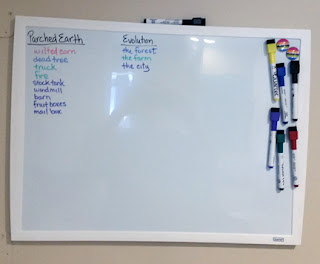 Parched Earth
wilted corn
dead tree
truck
fire
stock tank
windmill
barn
fruit boxes
mail box
Evolution
the forest
the farm
the city